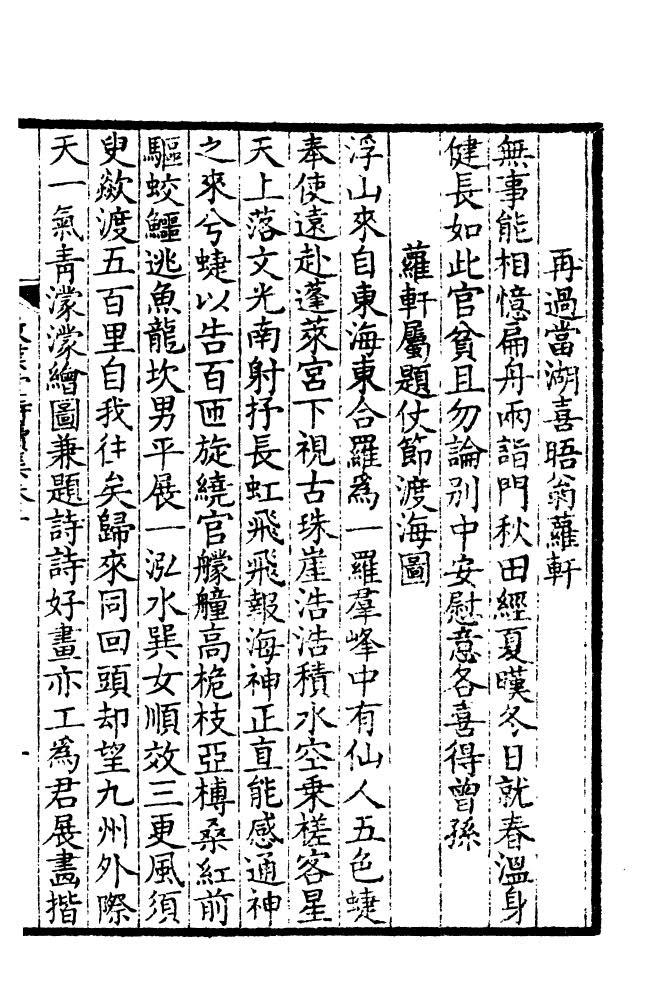 再過當湖喜晤翁蘿軒
無事能相憶扁舟兩詣門秋田經夏暵冬日就春溫身
健長如此官貧且勿論別中安慰意各喜得曾孫
蘿軒屬題仗節渡海圖
浮山來自東海東合羅爲一羅羣峰中有仙人五色蜨
奉使遠赴蓬萊宮下視古珠崖浩浩積水空乗槎客星
天上落文光南射抒長虹飛飛報海神正直能感通神
之來兮蜨以告百匝旋繞官艨艟高桅枝亞榑桑紅前
驅蛟鱷逃魚龍坎男平展一泓水巽女順效三更風須
臾歘渡五百里自我往矣歸來同回頭却望九州外際
天一氣青濛濛繪圖兼題詩詩好畫亦工爲君展畵揩